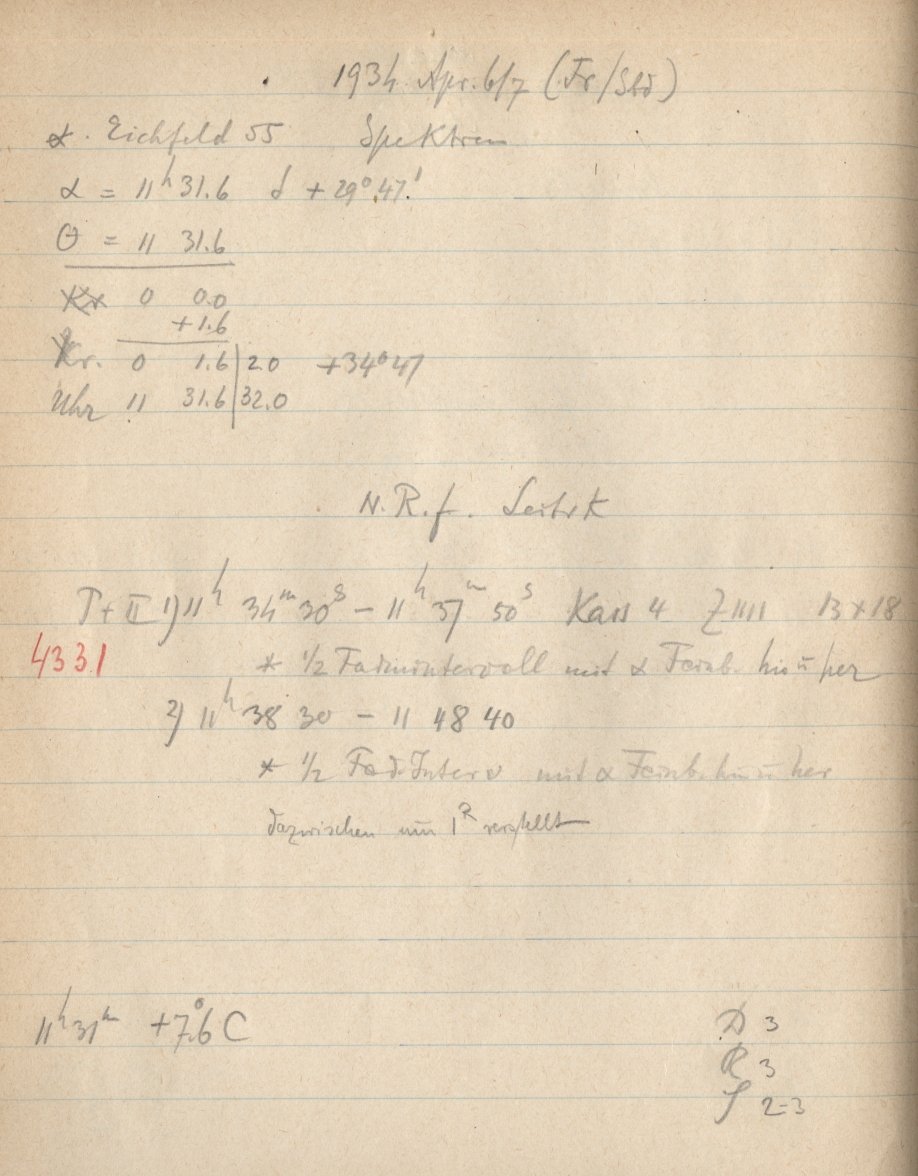 1934 Apr. 6/7 (Fr/Sbd)
α. Eichfeld 55 Spektren
α = 11h 31.6 δ +29° 47'
θ = 11 31.6
Kr 0 0.0
+1.6
Kr. 0 1.6 | 2.0 +34° 47
Uhr 11 31.6 | 32.0
N.R.f.
P + II 1) 11h 34m 30s – 11h 37m 50s Kass 4 Z IIII 13×18
4331
* 1/2 Fadenintervall mit α Feinb. hin ū her
2) 11h 38 30 – 11 48 40
* 1/2 Fad. Interv mit α Feinb. hin ū her
dazwischen um 1R verstellt
11h 31m +7°.6 C
D 3
R 3
S 2-3